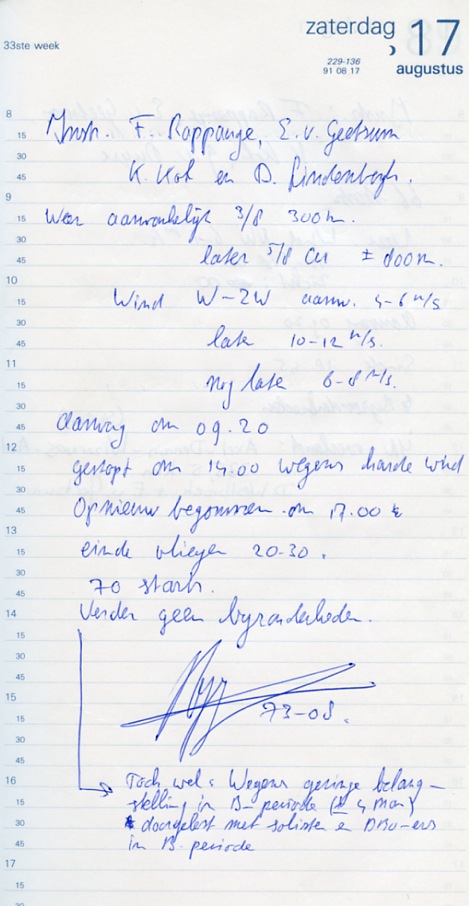 33ste week
zaterdag 17
229-136
91 08 17
augustus
8
Instr. F. Rappange, E. v. Geetsum
15
30
K. Kok en D. Lindenbergh.
45
9
15
Weer aanvankelijk 3/8 300m.
30
45
later 5/8 Cu ± 800m.
10
15
Wind W-ZW aanv. 4-6 m/s
30
45
late 10-12 m/s.
11
15
nog late 6-8 m/s.
30
45
aanvang om 09.20
12
15
gestopt om 14.00 wegens harde wind
30
45
Opnieuw begonnen om 17.00 &
13
15
einde vliegen 20-30.
30
45
70 starts.
14
Verder geen byzonderheden.
15
30
45
15
15
73-08.
30
45
16
Toch wel: Wegens geringe belang-
15
stelling in B-periode (± 4 man)
30
doorgelest met solisten e DBO-ers
45
in B-periode
17
15